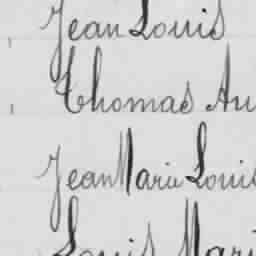 Jean Louis
Thomas Au
Jean Marie Louis
Louis Mari